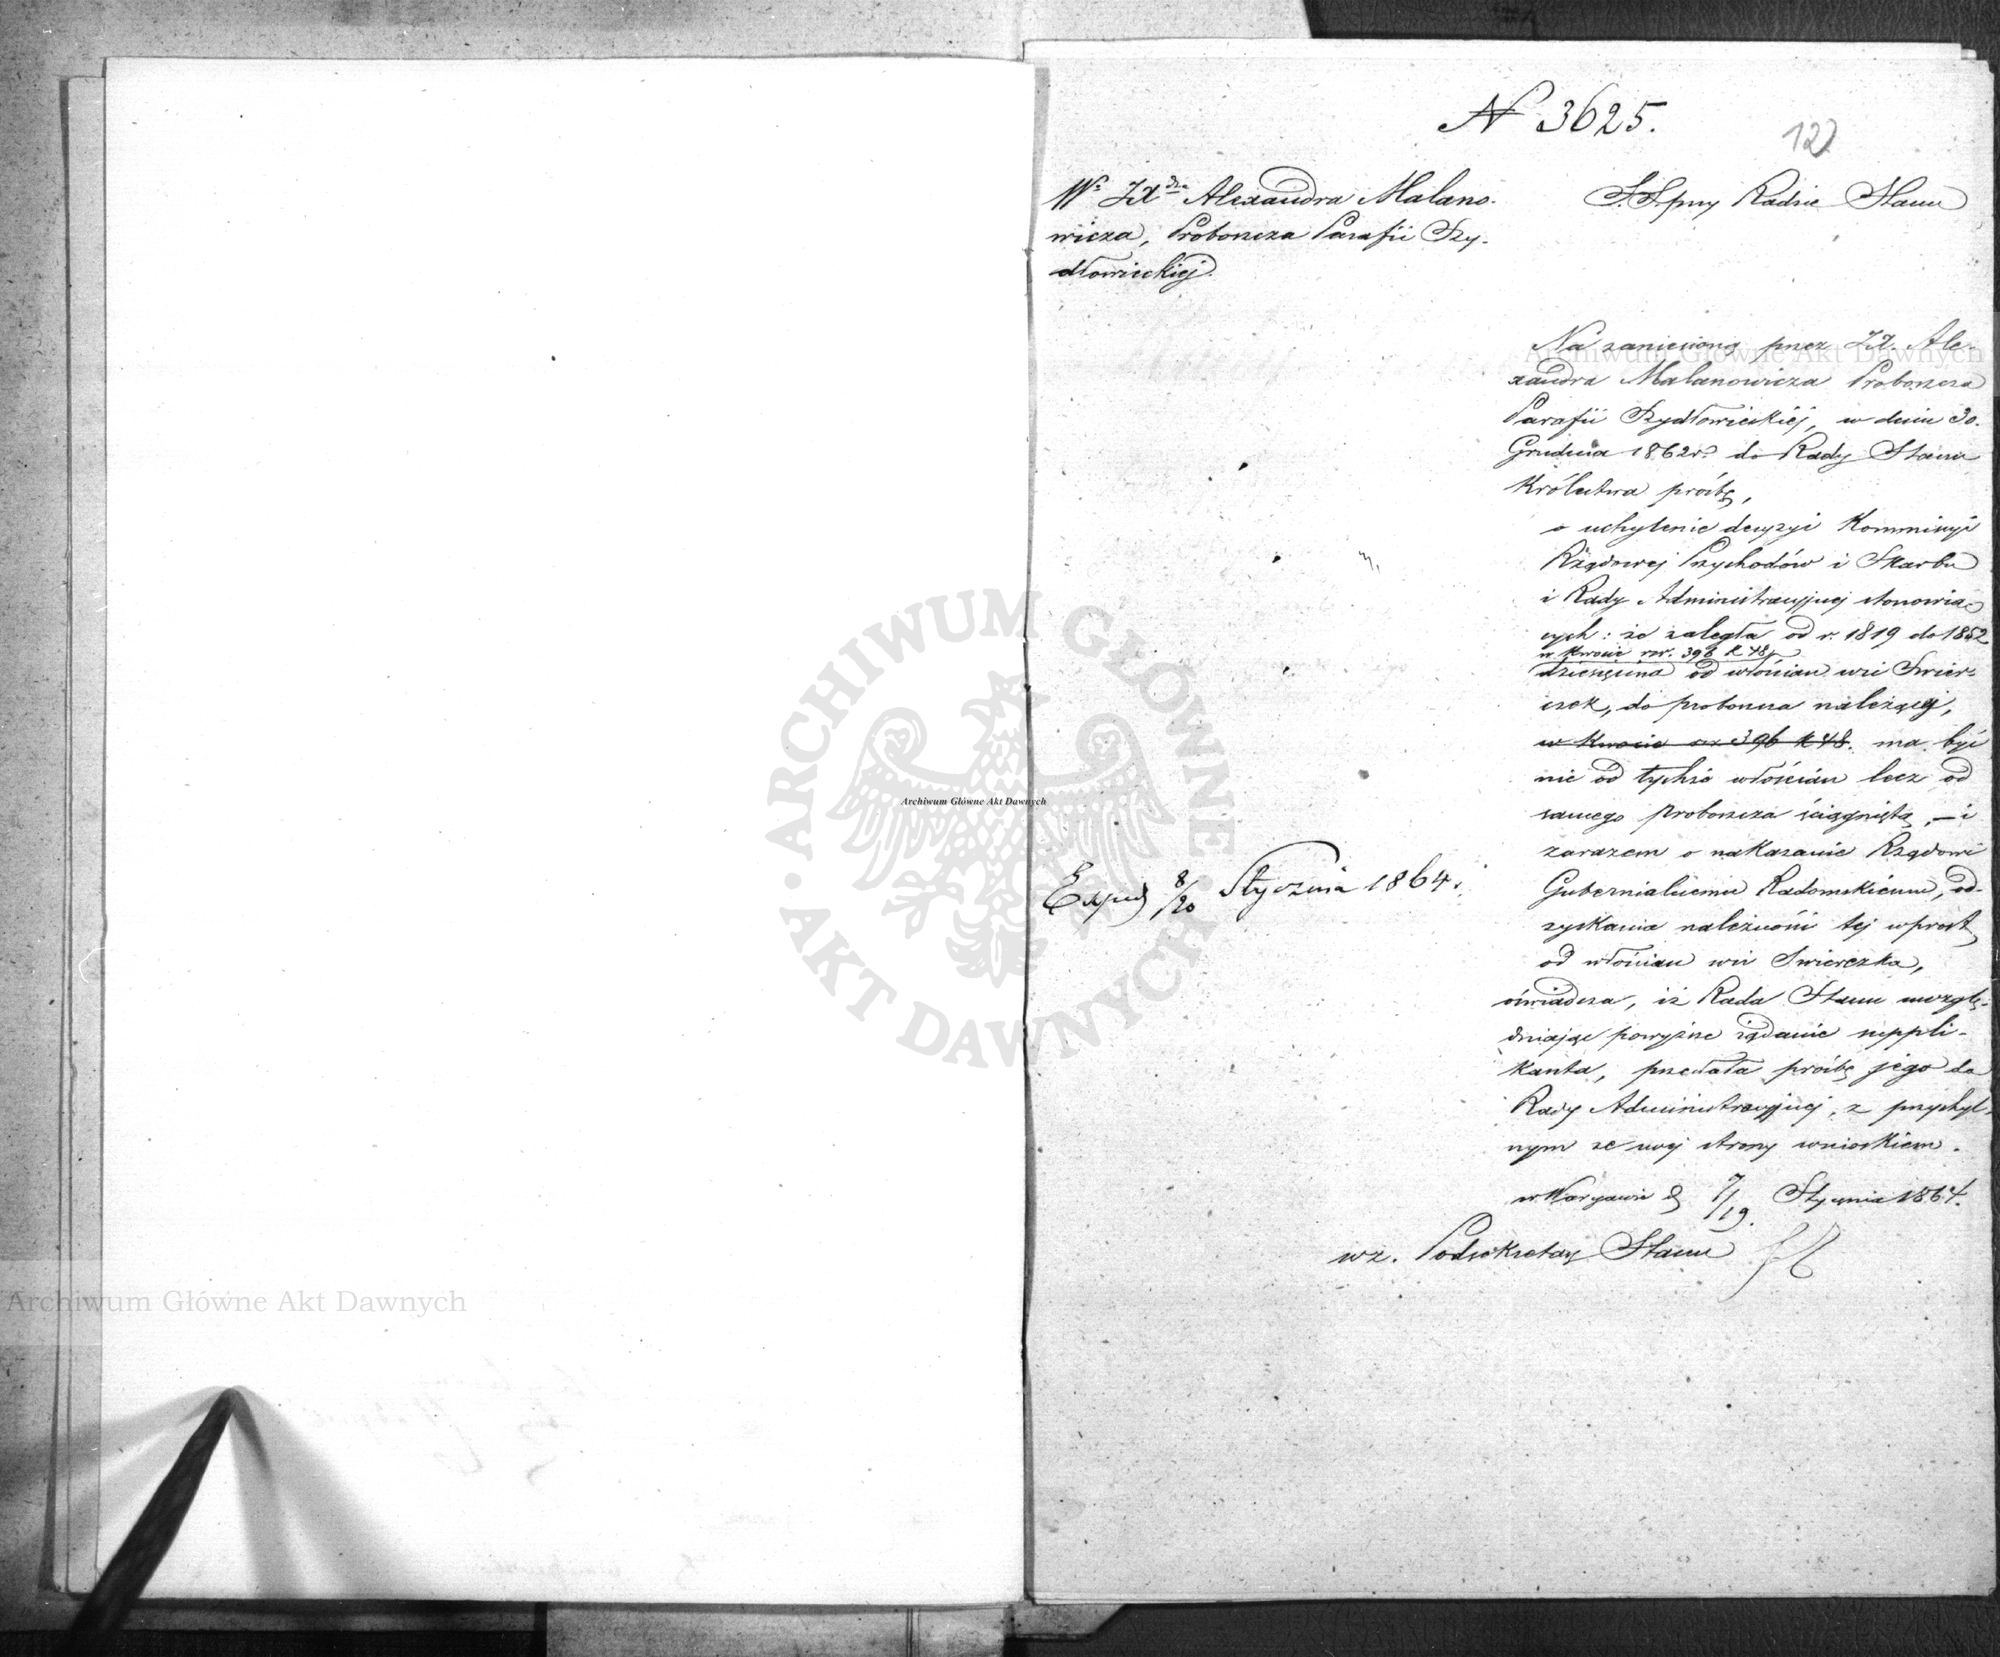 N 3625.
122
W° JX dza Alexandra Malano-
wicza, Proboszcza Parafii Szy-
dłowieckiej.
S. S. przy Radzie Stanu
Na zaniesioną przez JX. Ale-
xandra Malanowicza Proboszcza
Parafii Szydłowieckiej, w dniu 30.
Grudnia 1862 r. do Rady Stanu
Królestwa prośbę,
o uchylenie decyzyi Kommissyi
Rządowej Przychodów i Skarbu
i Rady Administracyjnej stanowią-
cych: że zaległa od r. 1819 do 1852
w kwocie rsr. 396 k 48,
dziesięcina od włościan wsi Swier-
czek, do proboszcza należącej,
w kwocie rsr 396 k 48. ma być
nie od tychże włościan lecz od
samego Proboszcza ściągniętą, — i
zarazem o nakazanie Rządowi
Gubernialnemu Radomskiemu, od-
zyskania należności tej wprost
od włościan wsi Swierczka,
oświadcza, iż Rada Stanu uwzglę-
dniając powyższe żądanie suppli-
kanta, przesłała prośbę jego do
Rady Administracyjnej, z przychyl-
nym ze swej strony wnioskiem.
w Warszawie d 7/19. Stycznia 1864.
wz. Podsekretarz Stanu
Exped 8/20 Stycznia 1864.
Archiwum Główne Akt Dawnych
ARCHIWUM GŁÓWNE
AKT DAWNYCH
Archiwum Główne Akt Dawnych
Archiwum Główne Akt Dawnych